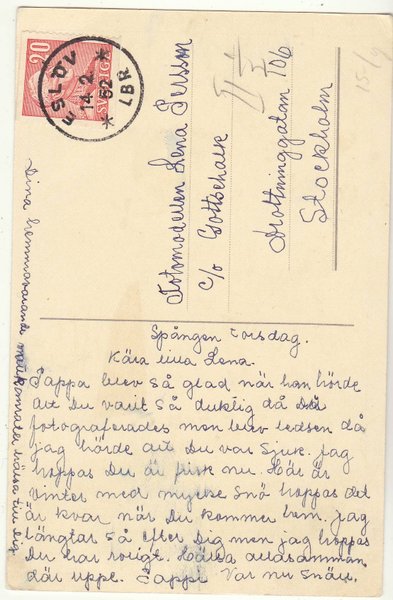 20
SVERIGE
ESLÖV
14 2
52
LBR
Fotomodellen Lena Persson
c/o Gottschalk
Drottninggatan 106
Stockholm
15-/9
Spången torsdag.
Kära lilla Lena.
Pappa blev så glad när han hörde
att Du varit så duktig då Du
fotograferades men blev ledsen då
jag hörde att Du var sjuk. Jag
hoppas Du är frisk nu. Här är
vinter med mycke snö hoppas det
är kvar när Du kommer hem. Jag
längtar så efter Dig men jag hoppas
Du har roligt. Hälsa allasamman
där uppe. Pappa Var nu snäll.
Dina hemmavarande hälsa till dig